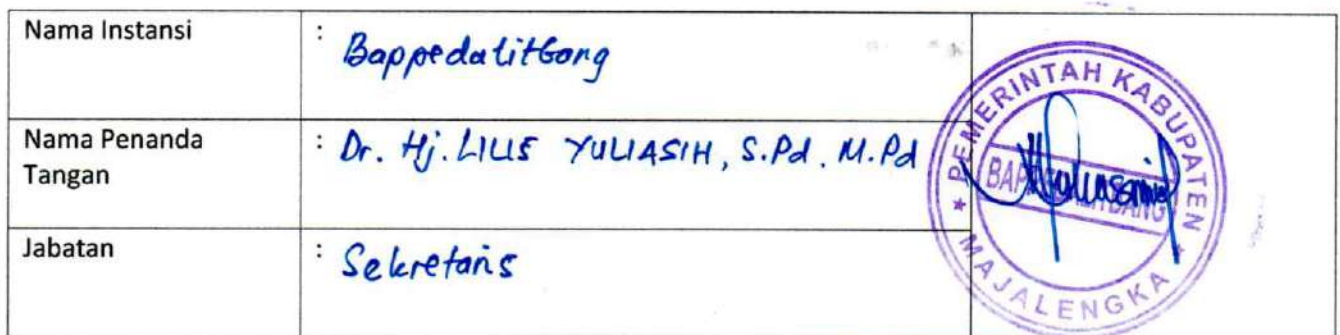 Nama Instansi : Bappedalitbang
Nama Penanda Tangan : Dr. Hj. LILIS YULIASIH, S.Pd. M.Pd
Jabatan : Sekretaris
PEMERINTAH KABUPATEN
BAPPEDALITBANG
MAJALENGKA